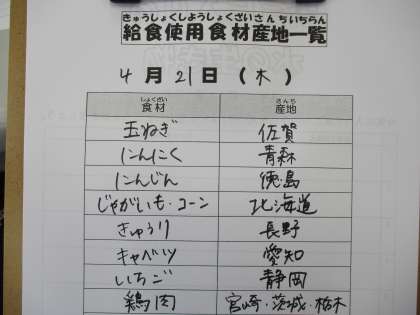 きゅうしょくしようしょくざいさんちいちらん
給食使用食材産地一覧
4月21日(木)
しょくざい さんち
食材 産地
玉ねぎ 佐賀
にんにく 青森
にんじん 徳島
じゃがいも・コーン 北海道
きゅうり 長野
キャベツ 愛知
いちご 静岡
鶏肉 宮崎・茨城・栃木